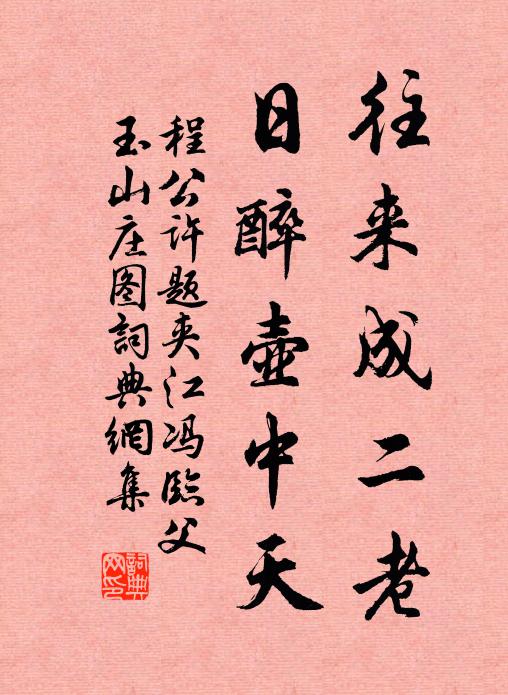 往来成二老
日醉壶中天
程公许题夹江冯临父
玉山庄图詞典網集
詞典网印